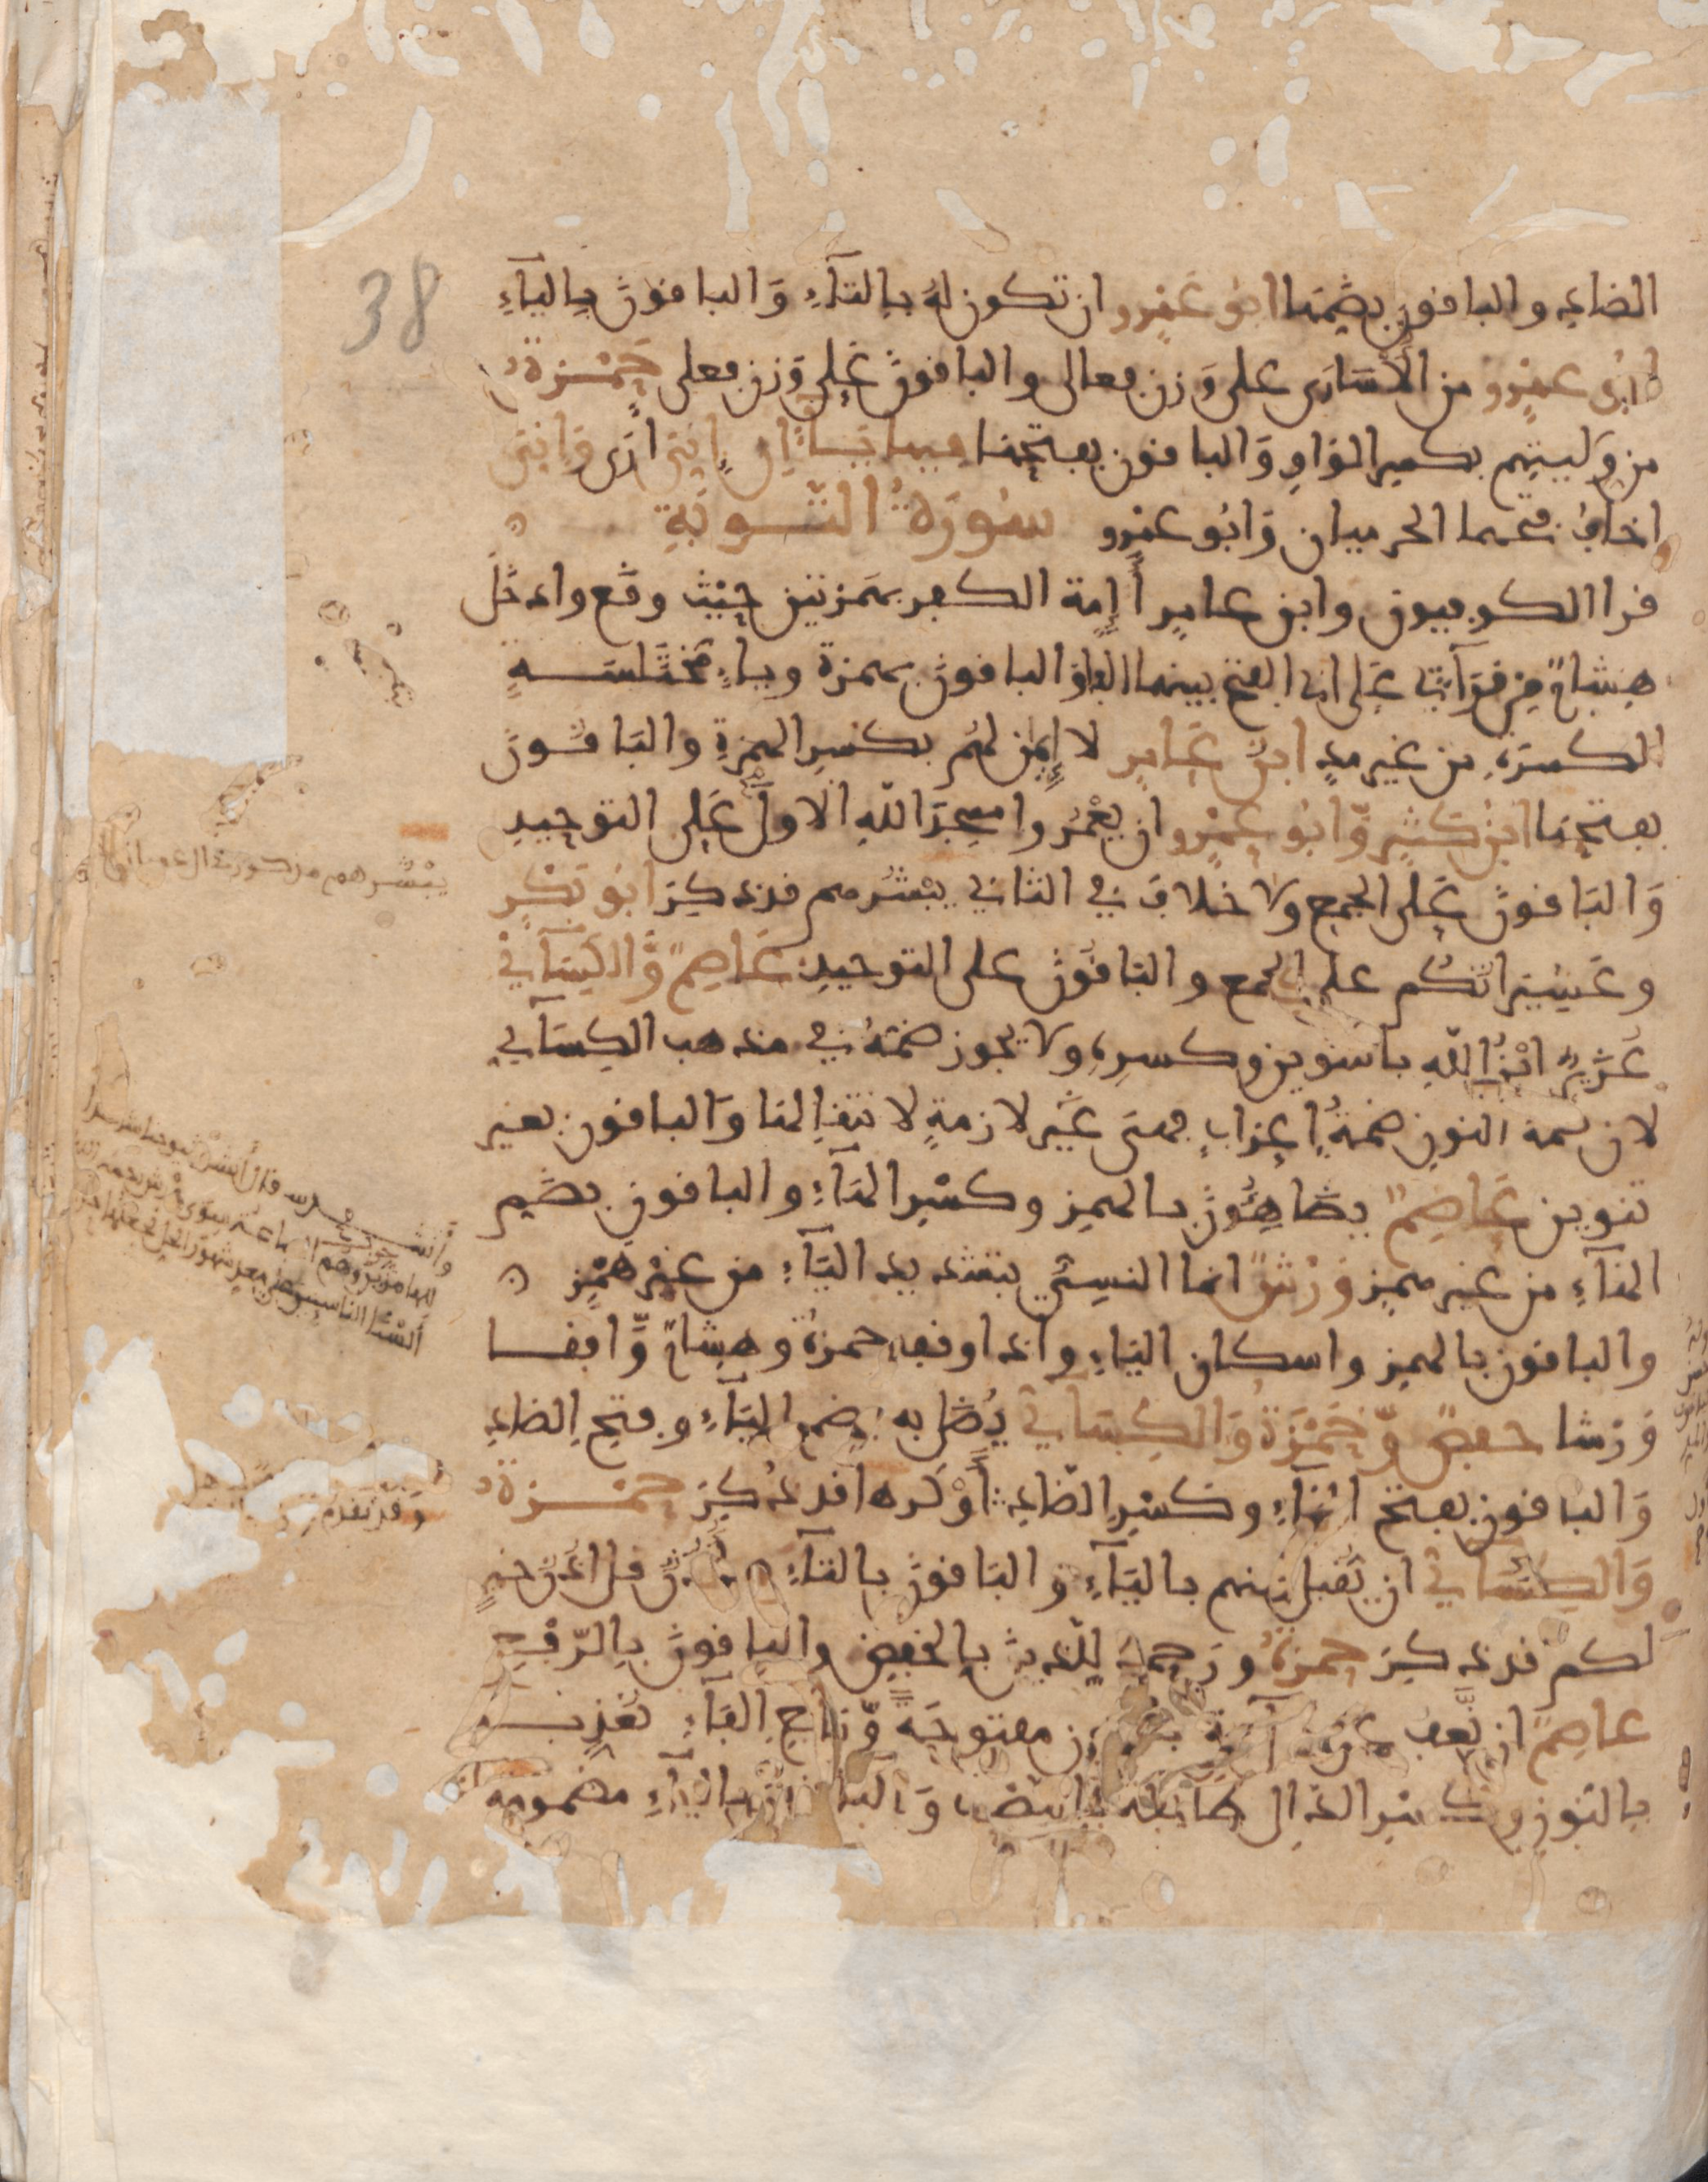 38
الضاد والباقون بضمها ابو عمرو ان تكون له بالتآء والباقون باليآء
ابو عمرو من الاسارى على وزن فعالى والباقون على وزن فعلى حمزة
من وليتهم بكسر الواو والباقون بفتحها فيها ياءان اني ارى واني
اخاف فتحهما الحرميان وابو عمرو سورة التوبة
قرا الكوفيون وابن عامر أإمة الكفر بهمزتين حيث وقع وادخل
هشام من قرآتي على ابي الفتح بينهما الفا والباقون بهمزة وياء مختلسه
الكسرة من غير مد ابن عامر لا إيمن لهم بكسر الهمزة والباقون
بفتحها ابن كثير وابو عمرو ان يعمروا مسجد الله الاول على التوحيد
والباقون على الجمع ولا خلاف في الثاني يبشرهم قد ذكر ابو بكر
وعشيراتكم على الجمع والباقون على التوحيد عاصم والكسآئي
عزير ابن الله بالتنوين وكسره ولا يجوز ضمه في مذهب الكسآئي
لان ضمة النون ضمة إعراب فهي غير لازمة لانتقالها والباقون بغير
تنوين عاصم يضاهئون بالهمز وكسر الهآء والباقون بضم
الهآء من غير همز ورش انما النسي بتشديد اليآء من غير همز
والباقون بالهمز واسكان اليآء واذا وقف حمزة وهشام وافقا
ورشا حفص وحمزة والكسائي يضل به بضم اليآء وفتح الضاد
والباقون بفتح اليآء وكسر الضاد أو كرها قد ذكر حمزة
والكسائي ان يقبل منهم باليآء والباقون بالتآء أذن قل اذن خير
لكم قد ذكر حمزة ورحمة للذين بالخفض والباقون بالرفع
عاصم ان نعف عن مفتوحة وضم الفآء نعذب
بالنون وكسر الذال طائفة بالنصب والباقون باليآء مضمومة
يبشرهم من سورة ال عمران
وقد تقدم